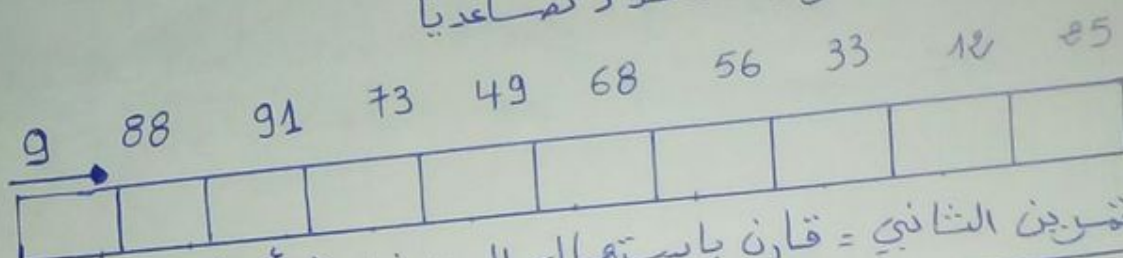 تصاعديا
9 88 91 73 49 68 56 33 12 25
تمرين الثاني = قارن باستعمال